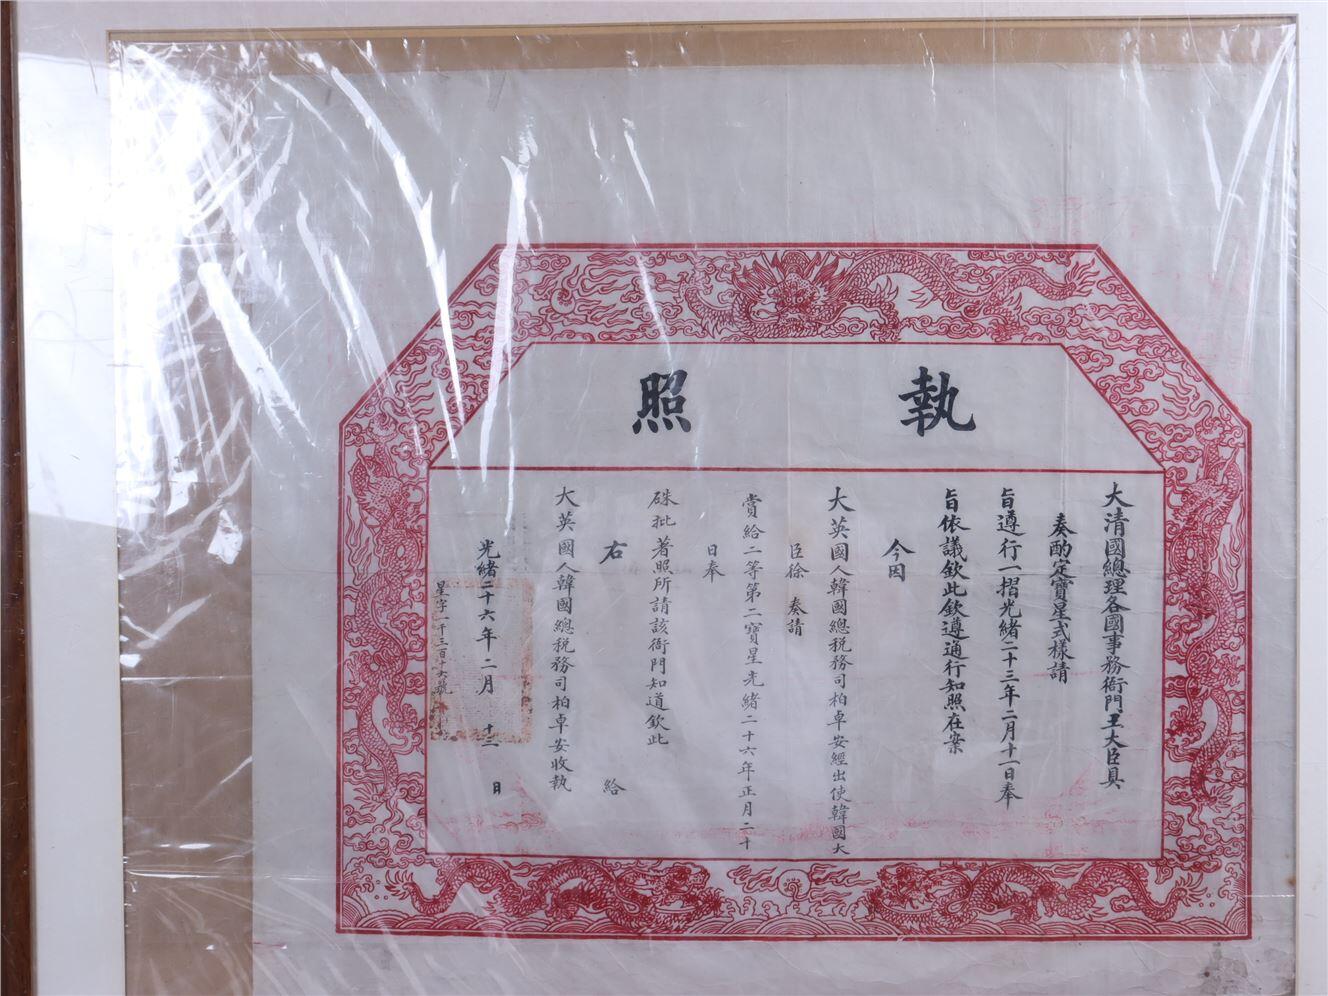 執照
大清國總理各國事務衙門王大臣具
奏酌定寶星式樣請
旨遵行一摺光緒二十三年二月十一日奉
旨依議欽此欽遵通行知照在案
今因
大英國人韓國總稅務司柏卓安經出使韓國大
臣徐 奏請
賞給二等第二寶星光緒二十六年正月二十
日奉
硃批著照所請該衙門知道欽此
右 給
大英國人韓國總稅務司柏卓安收執
光緒二十六年二月 十三 日
星字一千三百十六號